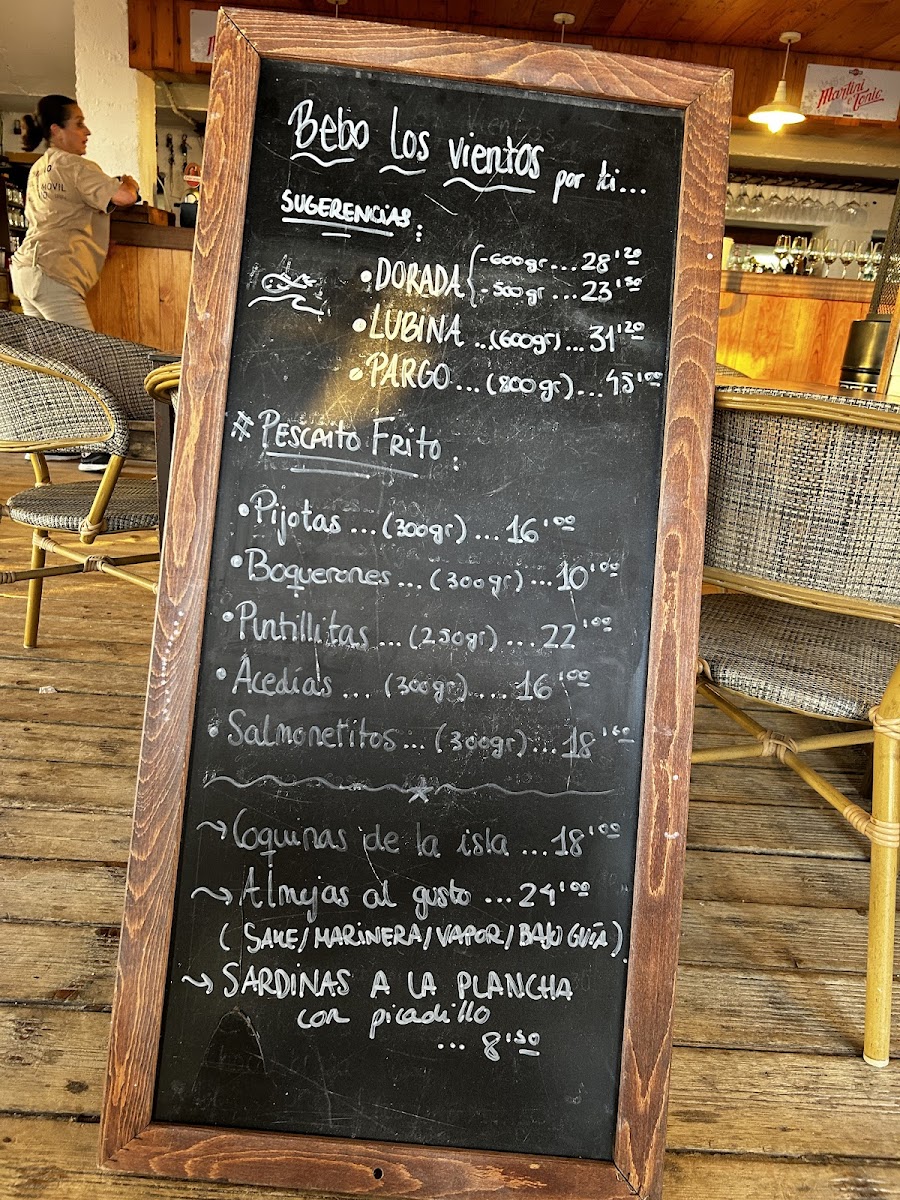 Bebo los vientos por ti...
SUGERENCIAS:
•DORADA {-600gr...28'20
-500gr...23'50
•LUBINA...(600gr)...31'20
•PARGO...(800gr)...45'10
# PESCAITO FRITO:
•Pijotas...(300gr)...16'00
•Boquerones...(300gr)...10'00
•Puntillitas...(250gr)...22'00
•Acedías...(300gr)...16'00
•Salmonetitos...(300gr)...18'60
→ Coquinas de la isla...18'00
→ Almejas al gusto...24'00
(SAKE/MARINERA/VAPOR/BAJO GUÍA)
→ SARDINAS A LA PLANCHA
con picadillo
...8'50
Martini & Tonic
MOVIL